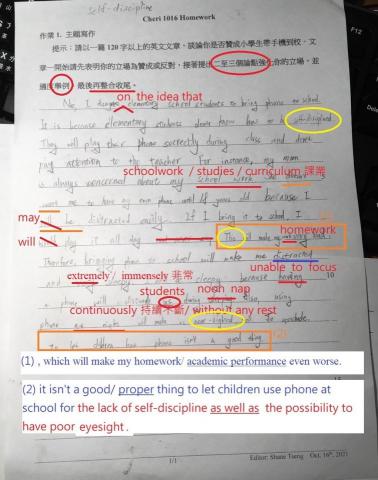 self-discipline
Cheri 1016 Homework
作業 1. 主題寫作
提示：請以一篇 120字以上的英文文章，談論你是否贊成小學生帶手機到校。文
章一開始請先表明你的立場為贊成或反對，接著提出二至三個論點強化你的立場，並
適度舉例，最後再整合收尾。
on the idea that
No, I disagree elementary school students to bring phone to school.
It is because elementary students don't know how to be self-diciplined
They will play their phone secretly during class and don't
pay attention to the teacher. For instance, my mom
schoolwork / studies / curriculum 課業
is always concerned about my school work. She doesn't
want me to have my own phone until years old because I
may be distracted easily. If I bring it to school, I
will play it all day. This will make my
homework
Therefore, bringing phone to school will make me distracted
extremely / immensely 非常
unable to focus
sleepy because having
10
students noon nap
a phone will during Also, using
continuously 持續不斷 / without any rest
phone all night will make us near-sighted
To let children have phone isn't a good thing.
(2)
(1) , which will make my homework/ academic performance even worse.
(2) it isn't a good/ proper thing to let children use phone at
school for the lack of self-discipline as well as the possibility to
have poor eyesight.
15
1/1
Editor: Shane Tseng Oct. 16th, 2021